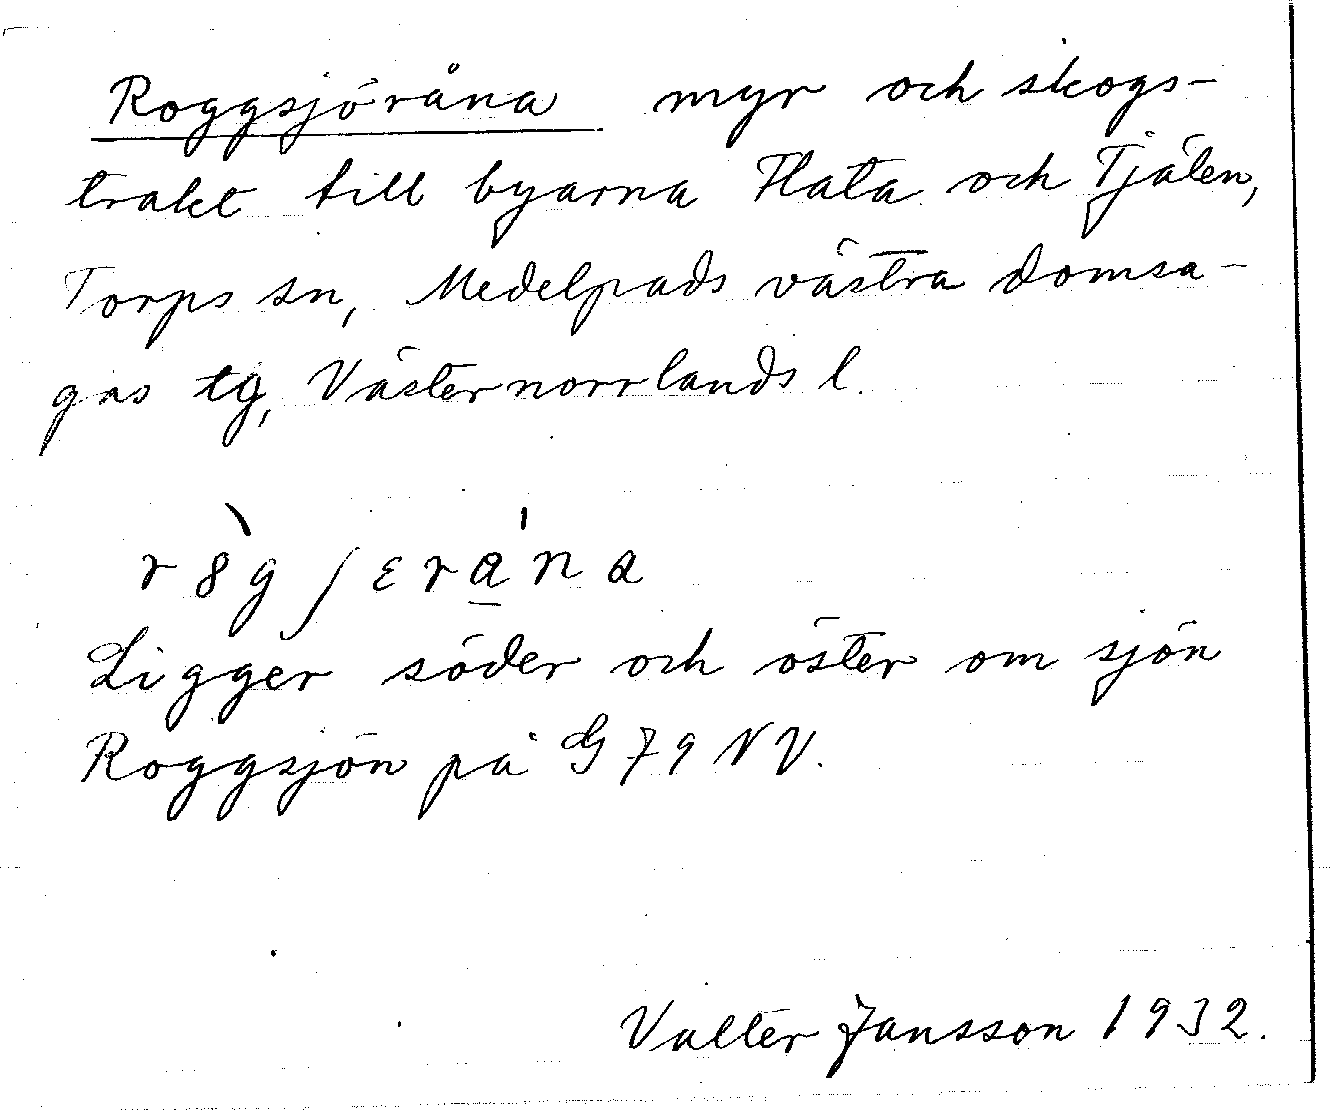 Roggsjöråna myr och skogs-
trakt till byarna Flata och Tjälen,
Torps sn, Medelpads västra domsa-
gas tg, Västernorrlands l.
r8̀gʃɛra̱̍na
Ligger söder och öster om sjön
Roggsjön på G 79 NV.
Valter Jansson 1932.